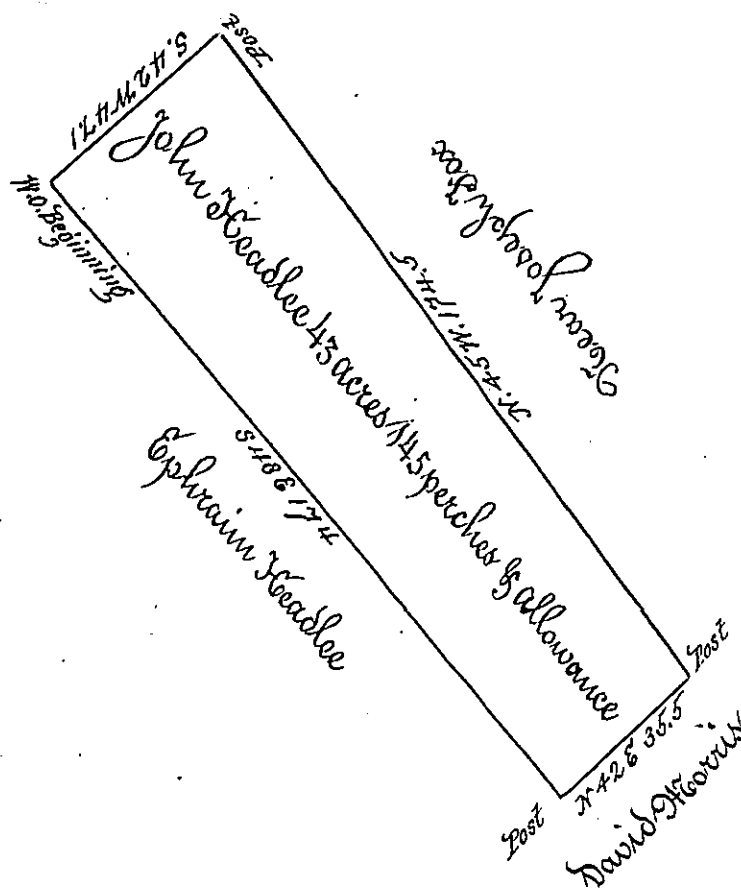 Post
S. 42 W 47.1
W.O. Beginning
John Headlee 43 acres 145 perches & allowance
N. 45 W. 174.5
Joseph Fox
S 48 E 174
Ephraim Headlee
Post
N 42 E 35.5
Post
David Morris